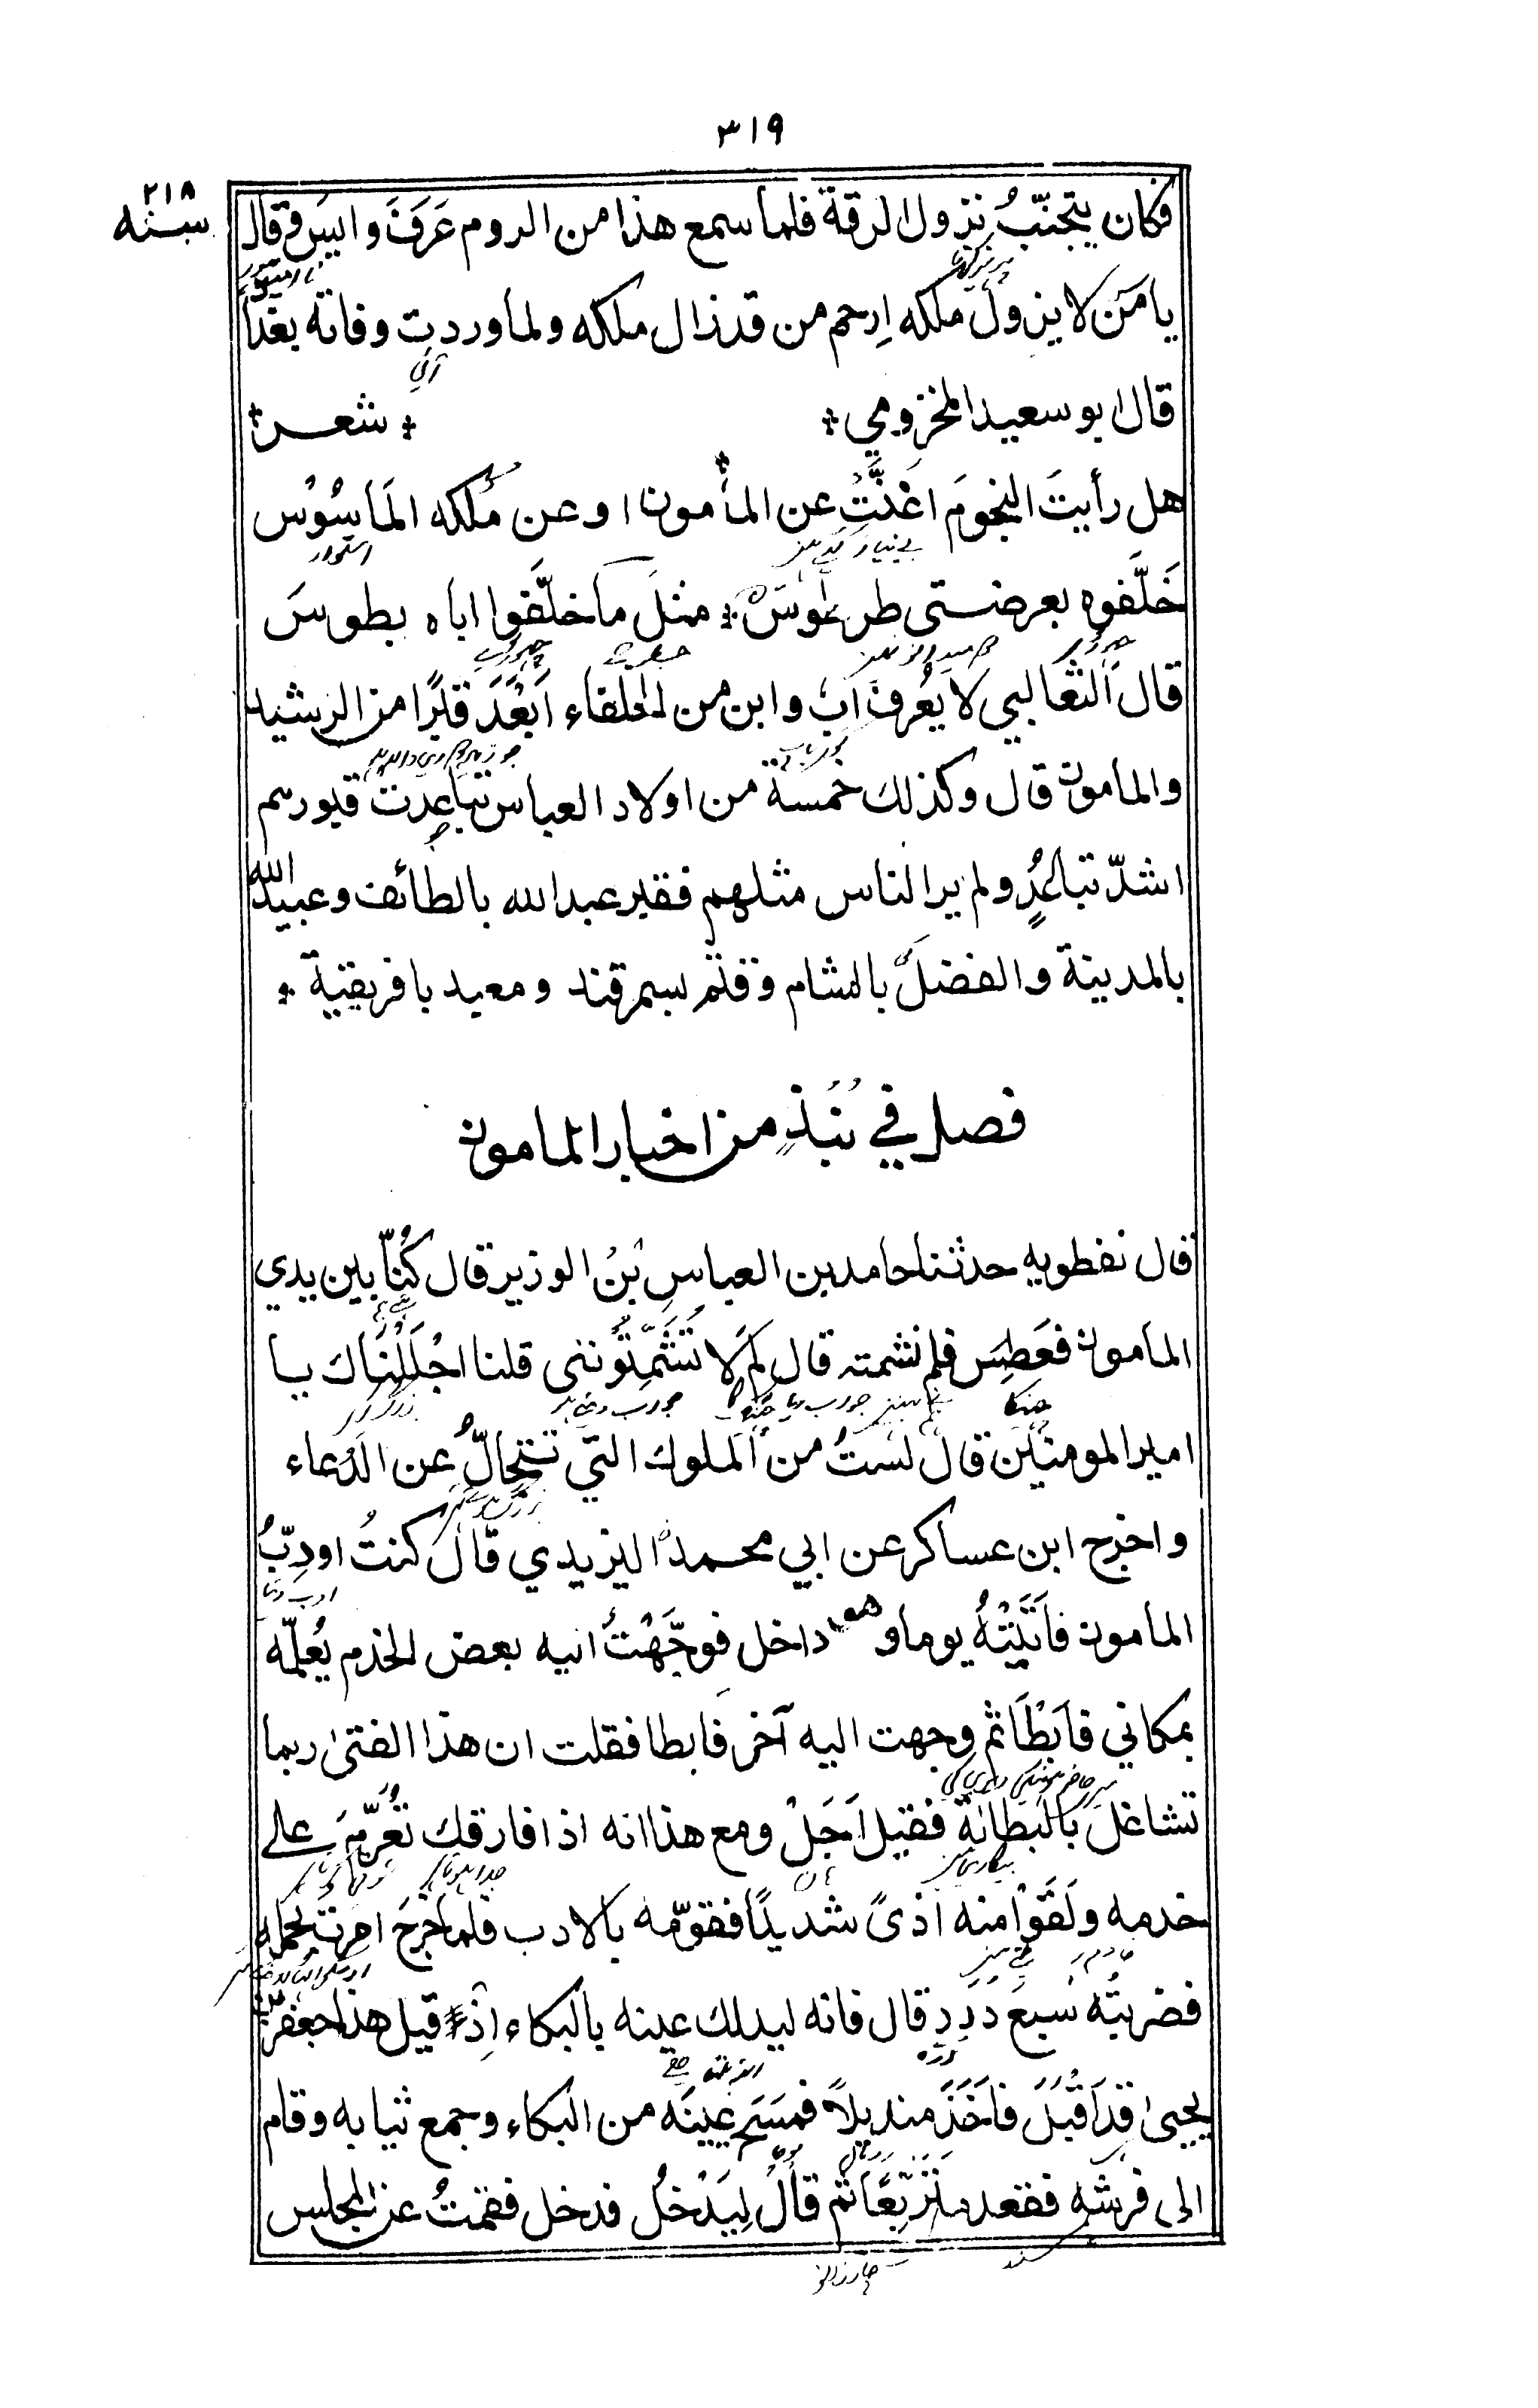 ٣١٩
٢١٨
سنه
فكان يتجنّبُ نزول الرقة فلما سمع هذا من الروم عَرَفَ وايسَ وقال
يا مَن لا يزول ملكه اِرحم من قد زال ملكه ولما وردت وفاته بغداد
قال ابو سعيد المخزومي ؛ شعر
هل رأيتَ النجومَ اغنَتْ عن المأمون او عن مُلكه المَاسُوْس
خَلَّفوه بعرصتى طرطوسَ ؛ مثلَ ما خلَّفوا اباه بطوسَ
قال الثعالبي لا يُعرف اب وابن من الخلفاء اَبْعَدَ قبرًا من الرشيد
والمامون قال وكذلك خمسة من اولاد العباس تباعدت قبورهم
اشدّ تباعُدٍ ولم ير الناس مثلهم فقبر عبد الله بالطائف وعبيد الله
بالمدينة والفضل بالشام وقثم بسمرقند ومعبد بافريقية ؛
فصل في نُبَذٍ من اخبار المامون
قال نفطويه حدثنا حامد بن العباسِ بْنُ الوزير قال كُنّا بين يدي
المامون فعَطِسَ فلم نشمته قال لِمَ لَا تُشَمِّتُوننى قلنا اجْلَلْنَاك يا
امير المومنين قال لستُ من الملوك التي تتجالُّ عن الدُعاء
واخرج ابن عساكر عن ابي محمد اليزيدي قال كنتُ اودِبُّ
المامون فاَتَيْتُهُ يوما وهو داخل فوجَّهْتُ اليه بعض الخدم يُعلّمه
بمكاني فاَبْطَأ ثم وجهت اليه آخر فابطا فقلت ان هذا الفتىٰ ربما
تشاغل بالبطالة فقيل اَجَلْ ومع هذا انه اذا فارقك تُعُرِّمَ على
خدمه ولَقَوْا منه اذىً شديدًا فقوّمه بالادب فلما خرجَ امرتُ بحمله
فضربتُه سَبعَ دِرَرٍ قال فانه ليدلك عينه بالبكاء اِذْ قيل هذا جعفر بن
يحيىٰ قد اَقْبَلَ فاَخَذَ منديلًا فمَسَحَ عينَه من البكاء وجمع ثيابه وقام
الى فرشه فقعد متربِّعًا ثم قال لِيَدْخُل فدخل فقمتُ عن المجلس